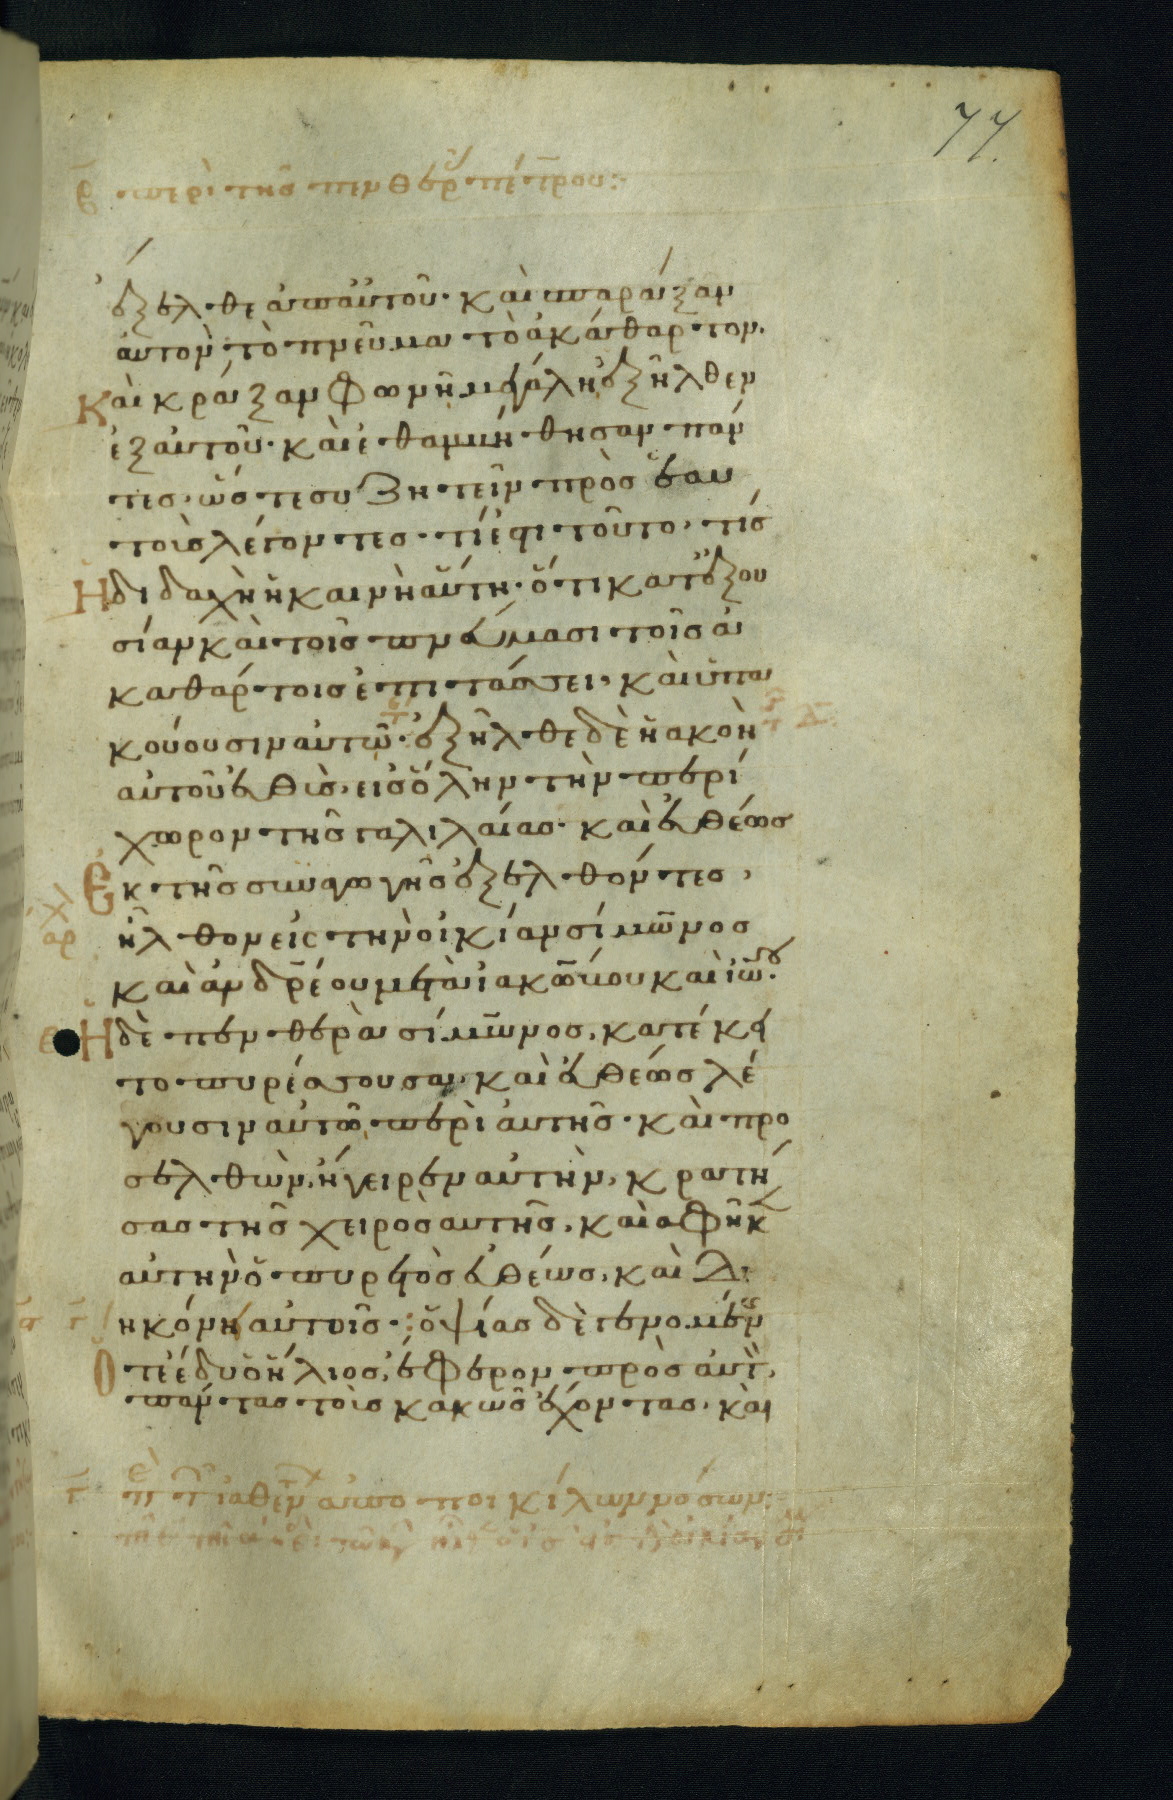 77.
β περὶ τῆς πενθερ πέτρου:
ἐξελθε ἀπ αὐτοῦ· καὶ σπαράξαν
αὐτὸν τὸ πνεῦμα τὸ ἀκάθαρτον.
Καὶ κράξαν φωνῇ μεγάλη ἐξῆλθεν
ἐξ αυτοῦ· καὶ ἐθαμβήθησαν πάν
τες, ὥστε συζητεῖν πρὸς ἑαυ
τοὺς λέγοντες· τί ἐστι τοῦτο, τίς
Ἡ διδαχὴ ἡ καινὴ αὕτη· ὅτι κατ ἐξου
σίαν καὶ τοῖς πνεύμασι τοῖς ἀ
καθάρτοις ἐπιτάσσει, καὶ ὑπα
κούουσιν αυτῶ· ἐξῆλθε δὲ ἡ ακοὴ
αὐτοῦ εὐθὺς, εις ὅλην τὴν περί
χωρον τῆς γαλιλαίας· καὶ εὐθέως
Ἐκ τῆς συναγωγῆς ἐξελθόντες,
ἦλθον εἰς τὴν οἰκίαν σίμωνος
καὶ ἀνδρέου μετὰ ἰακώβου καὶ ἰω·
Ἡ δὲ πενθερὰ σίμωνος, κατέκει
το πυρέσσουσα, καὶ εὐθέως λέ
γουσιν αὐτῶ περὶ αὐτῆς· καὶ προ
σελθὼν, ἤγειρεν αὐτὴν, κρατή
σας τῆς χειρὸς αυτῆς, καὶ αφῆκ
αὐτὴν ὁ πυρετὸς εὐθέως, καὶ δι
ηκόνει αὐτοῖς· ὀψίας δὲ γενομέν
Ὅτε ἔδυ ὁ ἥλιος, ἔφερον πρὸς αὐτ,
πάντας τοὺς κακῶς ἔχοντας, καὶ
ἰαθεν ἀπο ποικίλων νόσων: